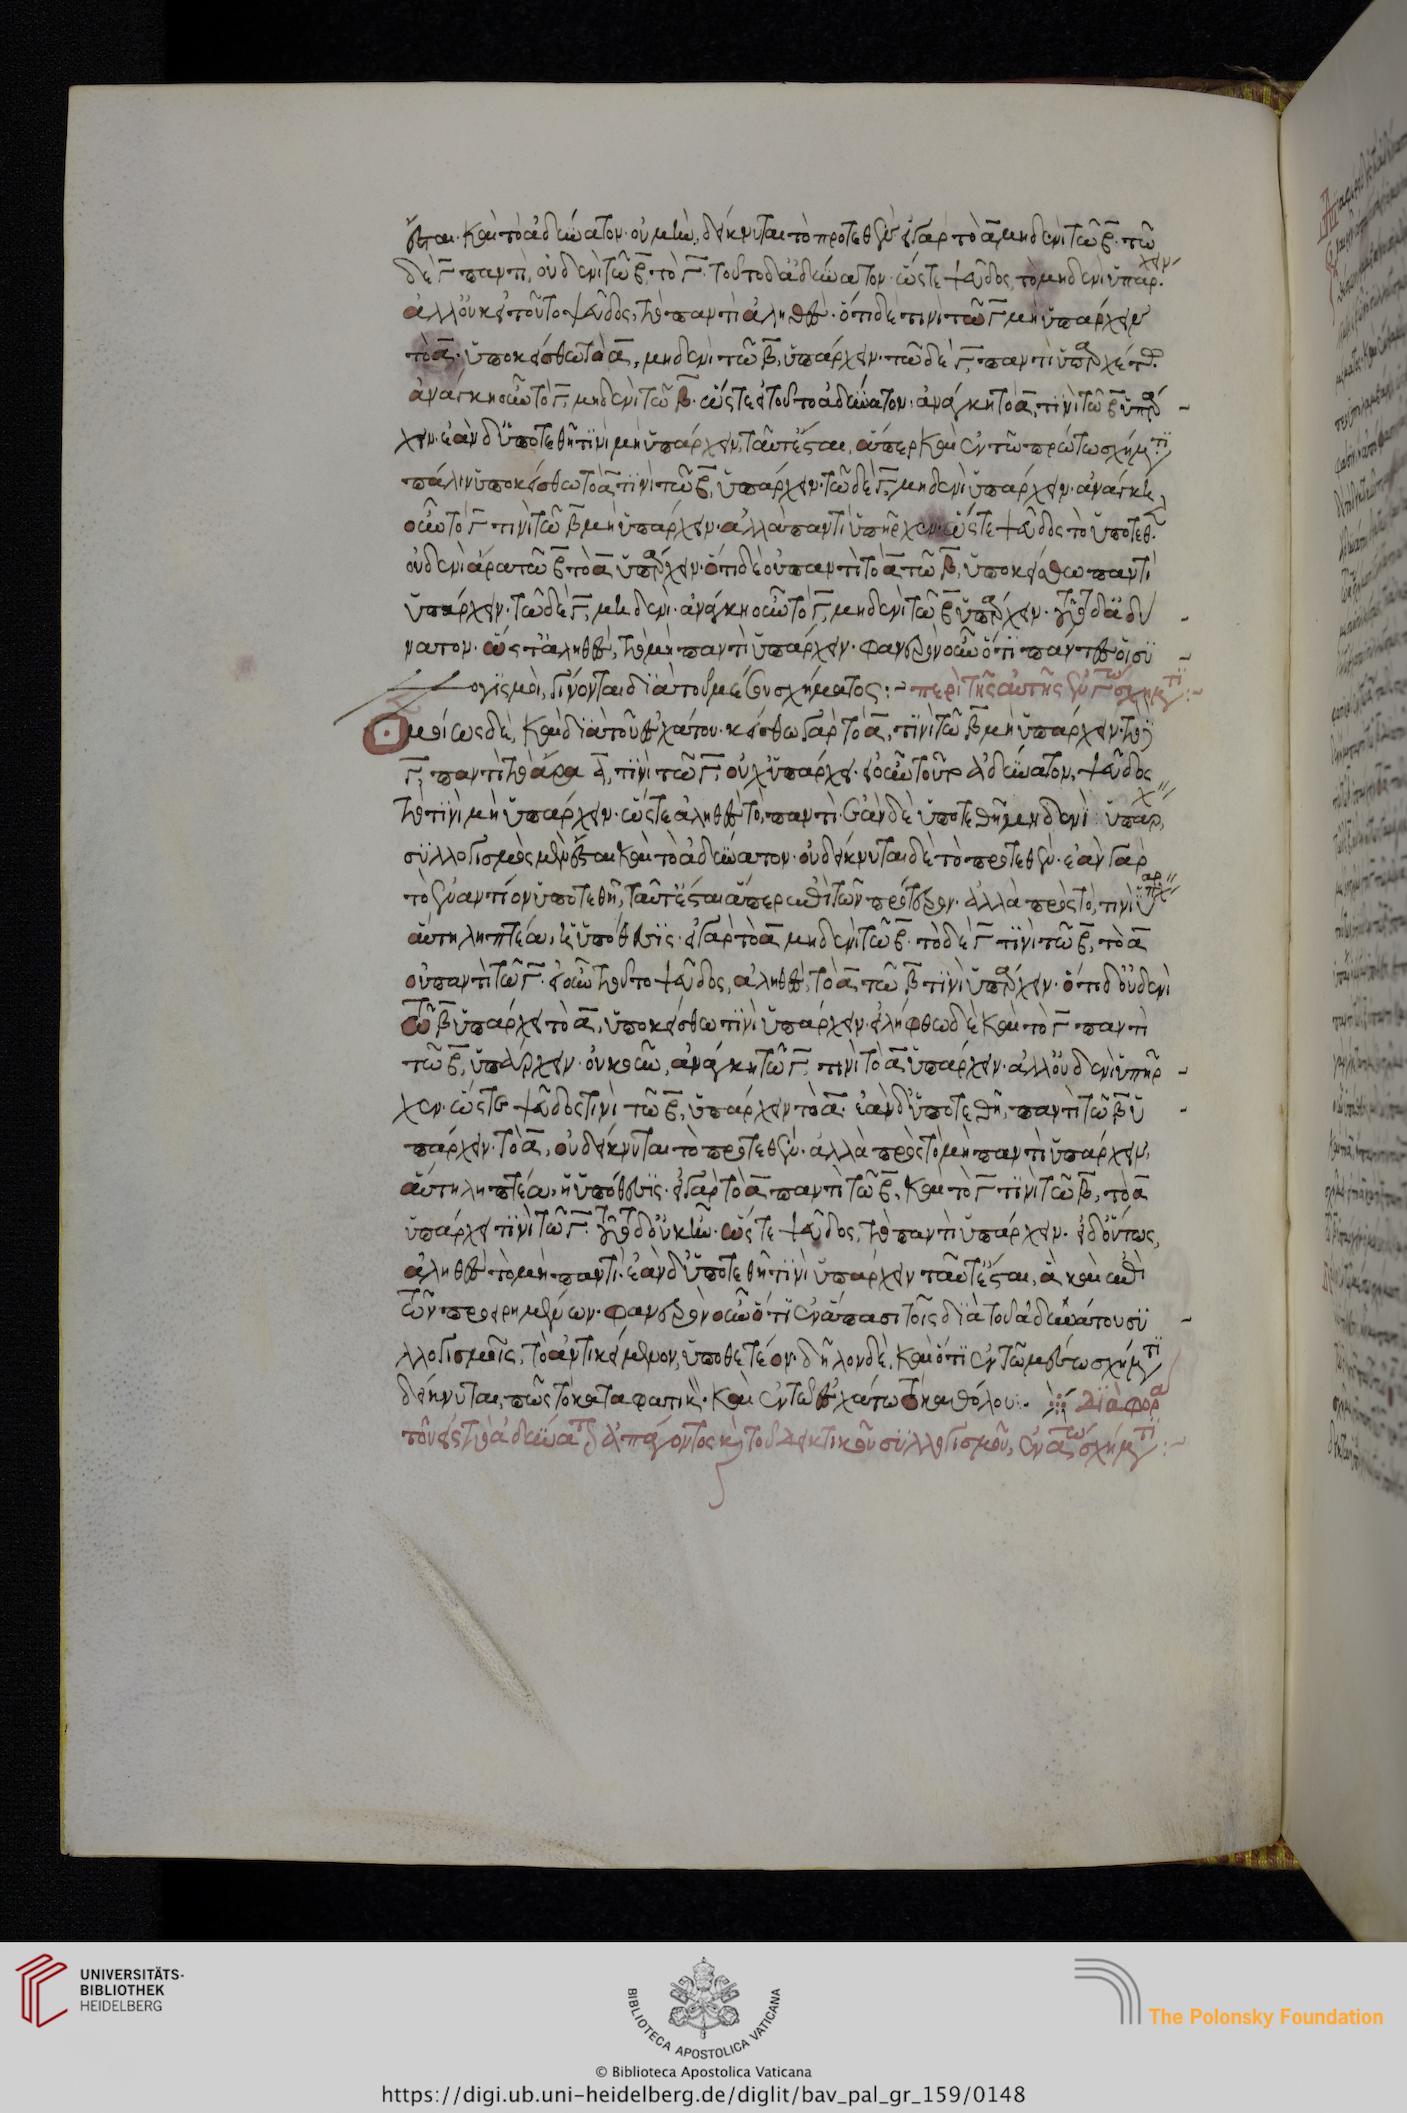 ἔσται· καὶ τὸ ἀδύνατον· οὐ μὴν, δείκνυται τὸ προτεθέν· εἰ γὰρ τὸ α̅, μηδενὶ τῶ β̅· τῶ
δὲ γ̅ παντὶ, οὐδενὶ τῶ β̅, τὸ γ̅· τοῦτο δ' ἀδύνατον· ὥστε ψεῦδος, τὸ μηδενὶ ὑπάρχειν
ἀλλ' οὐκ εἰ τοῦτο ψεῦδος, τὸ παντὶ ἀληθές· ὅτι δὲ τινὶ τῶ γ̅ μὴ ὑπάρχειν
τὸ α̅· ὑποκείσθω τὸ α̅, μηδενὶ τῶ β̅, ὑπάρχειν· τῶ δὲ γ̅, παντὶ ὑπαρχέτω·
ἀνάγκη οὖν τὸ γ̅, μηδενὶ τῶ β̅· ὥστε εἰ τοῦτο ἀδύνατον· ἀνάγκη τὸ α̅, τινὶ τῶ β̅ ὑπάρ-
χειν· ἐὰν δ' ὑποτεθῆ τινὶ μὴ ὑπάρχειν, ταῦτ' ἔσται, ἅπερ καὶ ἐν τῶ πρώτω σχήματι
πάλιν ὑποκείσθω τὸ α̅ τινὶ τῶ β̅, ὑπάρχειν· τῶ δὲ γ̅, μηδενὶ ὑπάρχειν· ἀνάγκη
οὖν τὸ γ̅ τινὶ τῶ β̅ μὴ ὑπάρχειν· ἀλλὰ παντὶ ὑπῆρχεν· ὥστε ψεῦδος τὸ ὑποτεθέν·
οὐδενὶ ἄρα τῶ β̅ τὸ α̅ ὑπάρχειν· ὅτι δὲ οὐ παντὶ τὸ α̅ τῶ β̅, ὑποκείσθω παντὶ
ὑπάρχειν· τῶ δὲ γ̅, μηδενὶ· ἀνάγκη οὖν τὸ γ̅, μηδενὶ τῶ β̅ ὑπάρχειν· τοῦτο δ' ἀδύ-
νατον· ὥστ' ἀληθὲς, τὸ μὴ παντὶ ὑπάρχειν· φανερὸν οὖν ὅτι πάντες οἱ συ-
λλογισμοὶ, γίνονται διὰ τοῦ μέσου σχήματος :- περὶ τῆς αὐτῆς ἐν γ̅ω σχήματι :-
Ὁμοίως δὲ, καὶ διὰ τοῦ ἐσχάτου· κείσθω γὰρ τὸ α̅, τινὶ τῶ β̅ μὴ ὑπάρχειν· τὸ
γ̅, παντὶ τὸ ἄρα α̅, τινὶ τῶ γ̅, οὐχ ὑπάρχει· εἰ οὖν τοῦτο ἀδύνατον, ψεῦδος
τὸ τινὶ μὴ ὑπάρχειν· ὥστε ἀληθὲς τὸ, παντὶ· ἐὰν δὲ ὑποτεθῆ μηδενὶ ὑπάρχειν
συλλογισμὸς μὲν ἔσται καὶ τὸ ἀδύνατον· οὐ δείκνυται δὲ τὸ προτεθέν· ἐὰν γὰρ
τὸ ἐναντίον ὑποτεθῆ, ταῦτ' ἔσται ἅπερ ἐπὶ τῶν πρότερον· ἀλλὰ πρὸς τὸ, τινὶ ὑπάρχειν
αὕτη ληπτέα, ἡ ὑπόθεσις· εἰ γὰρ τὸ α̅ μηδενὶ τῶ β̅· τὸ δὲ γ̅ τινὶ τῶ β̅, τὸ α̅
οὐ παντὶ τῶ γ̅· εἰ οὖν τοῦτο ψεῦδος, ἀληθὲς, τὸ α̅ τῶ β̅ τινὶ ὑπάρχειν· ὅτι δ' οὐδενὶ
τῶ β̅ ὑπάρχει τὸ α̅, ὑποκείσθω τινὶ ὑπάρχειν· εἰλήφθω δὲ καὶ τὸ γ̅ παντὶ
τῶ β̅, ὑπάρχειν· οὐκοῦν, ἀνάγκη τῶ γ̅, τινὶ τὸ α̅ ὑπάρχειν· ἀλλ' οὐδενὶ ὑπῆρ-
χεν· ὥστε ψεῦδος τινὶ τῶ β̅, ὑπάρχειν τὸ α̅· ἐὰν δ' ὑποτεθῆ, παντὶ τῶ β̅ ὑ-
πάρχειν· τὸ α̅, οὐ δείκνυται τὸ προτεθέν· ἀλλὰ πρὸς τὸ μὴ παντὶ ὑπάρχειν,
αὕτη ληπτέα, ἡ ὑπόθεσις· εἰ γὰρ τὸ α̅ παντὶ τῶ β̅, καὶ τὸ γ̅ τινὶ τῶ β̅, τὸ α̅
ὑπάρχει τινὶ τῶ γ̅· τοῦτο δ' οὐκ ἦν· ὥστε ψεῦδος, τὸ παντὶ ὑπάρχειν· εἰ δ' οὕτως,
ἀληθὲς τὸ μὴ παντὶ· ἐὰν δ' ὑποτεθῆ τινὶ ὑπάρχειν ταῦτ' ἔσται, ἃ καὶ ἐπὶ
τῶν προειρημένων· φανερὸν οὖν ὅτι ἐν ἅπασι τοῖς διὰ τοῦ ἀδυνάτου συ-
λλογισμοῖς, τὸ ἀντικείμενον, ὑποθετέον· δῆλον δὲ, καὶ ὅτι ἐν τῶ μέσω σχήματι
δείκνυται, πῶς τὸ καταφατικὸν· καὶ ἐν τῶ ἐσχάτω τὸ καθόλου :- διαφορὰ
τοῦ εἰς τὸ ἀδύνατον ἀπάγοντος καὶ τοῦ δεικτικοῦ συλλογισμοῦ, ἐν α̅ω σχήματι :-
UNIVERSITÄTS-
BIBLIOTHEK
HEIDELBERG
BIBLIOTECA APOSTOLICA VATICANA
The Polonsky Foundation
© Biblioteca Apostolica Vaticana
https://digi.ub.uni-heidelberg.de/diglit/bav_pal_gr_159/0148